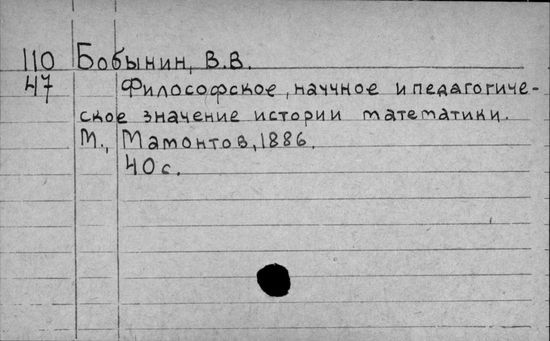 110 Бобынин, В.В.
47 Философское, научное и педагогиче-
ское значение истории математики.
М., Мамонтов, 1886.
40 с.